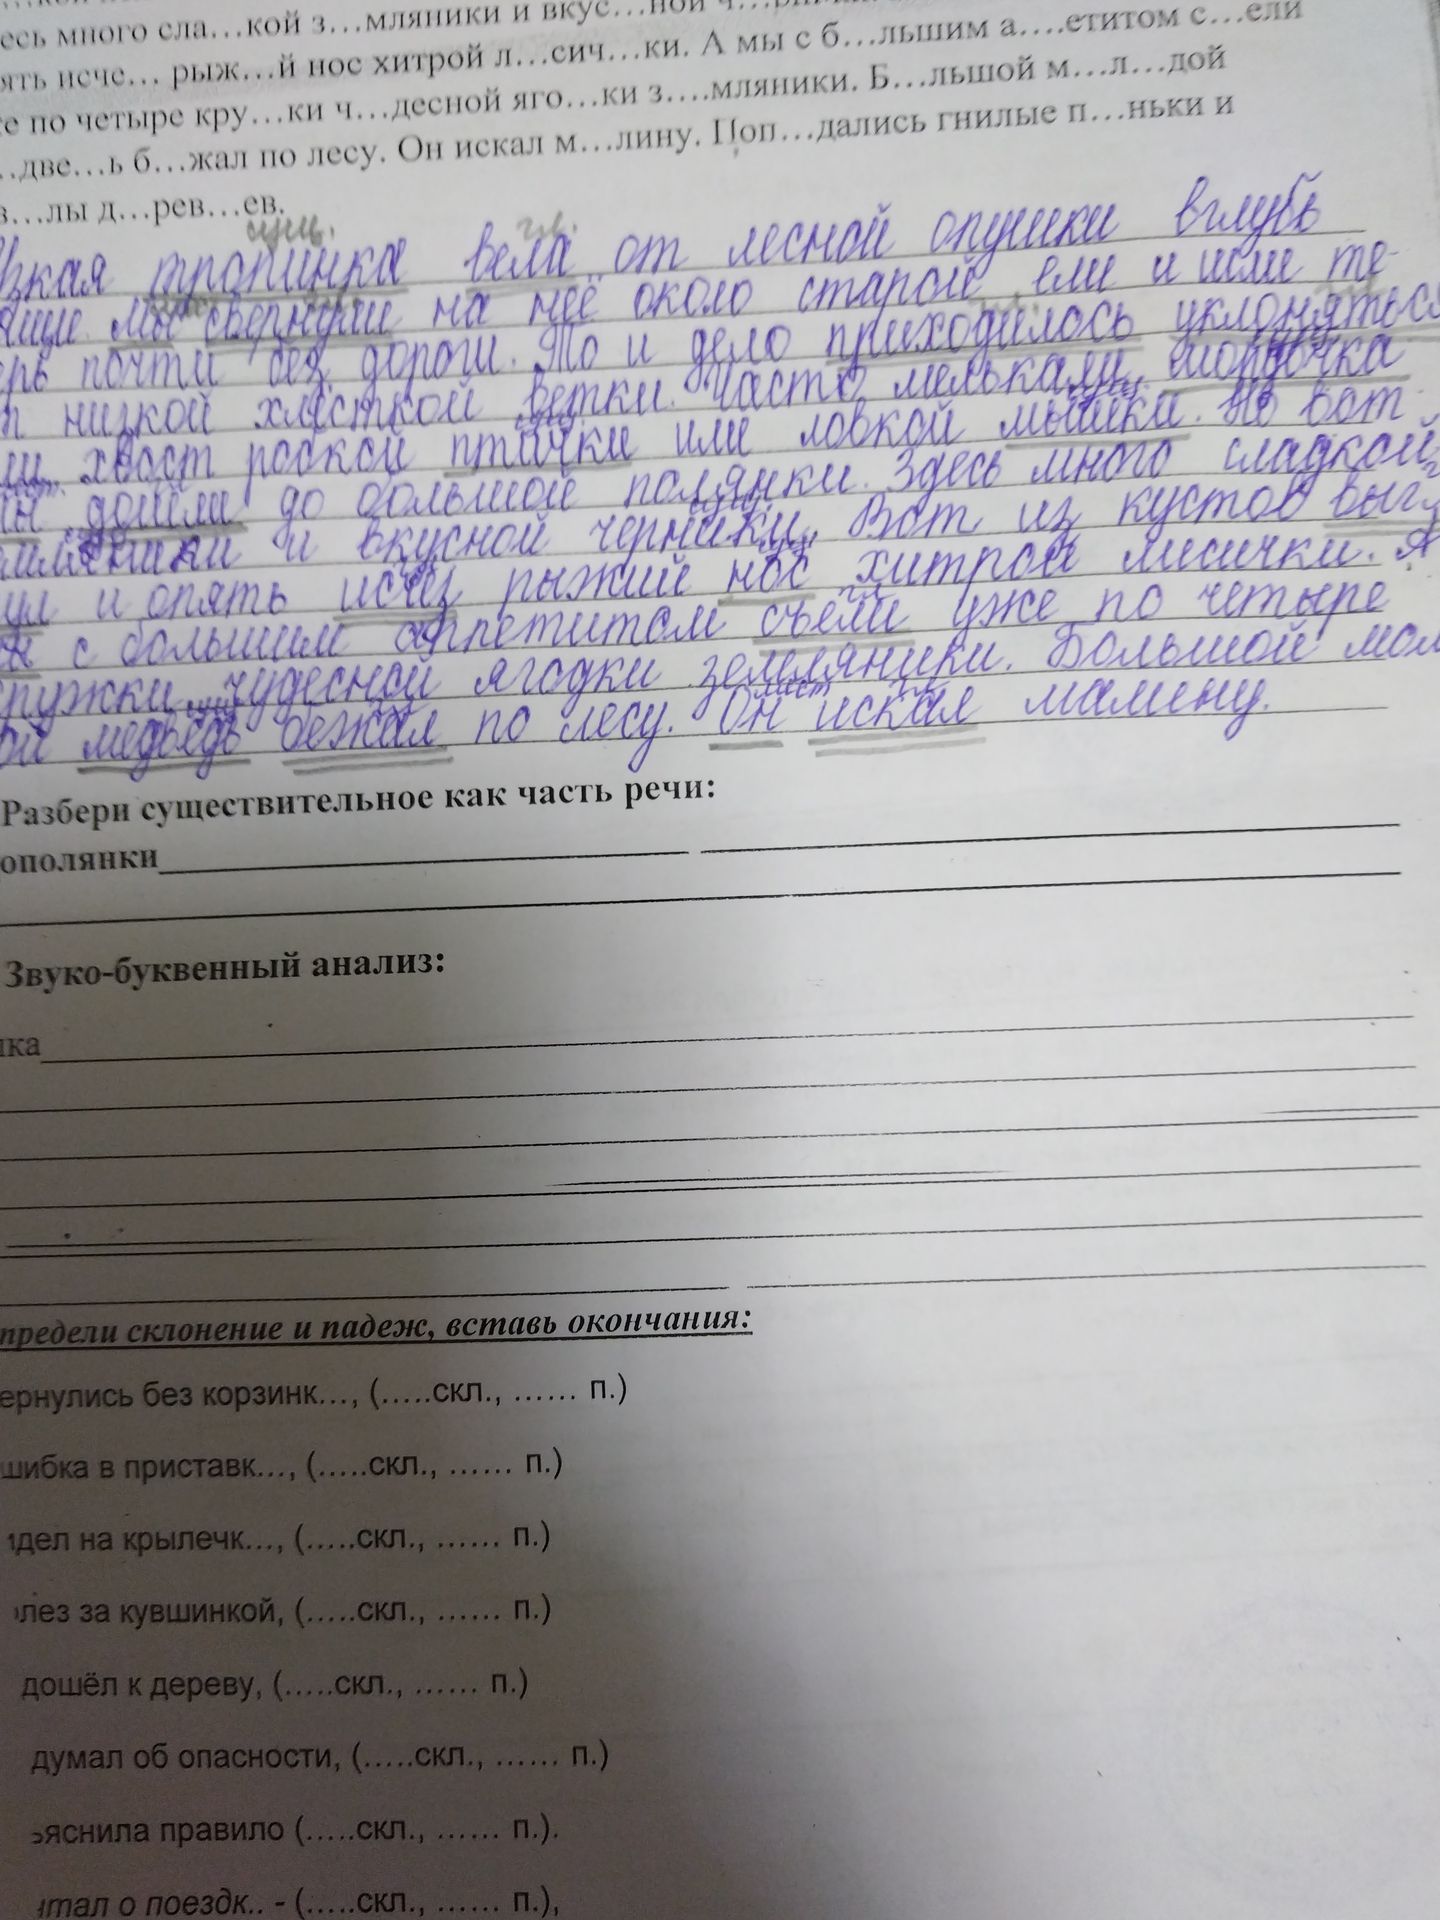 есь много сла…кой з…мляники и вкус…ной
ять исче… рыж…й нос хитрой л…сич…ки. А мы с б…льшим а….етитом с…ели
е по четыре кру…ки ч…десной яго…ки з….мляники. Б…льшой м…л…дой
…две…ь б…жал по лесу. Он искал м…лину. Поп…дались гнилые п…ньки и
в…лы д…рев…ев.
сущ. гл.
зкая тропинка вела от лесной опушки вглубь
мы свернули на неё около старой ели и шли те-
ерь почти без дороги. То и дело приходилось уклоняться
т низкой хлёсткой ветки. Часто мелькали мордочка
ли хвост робкой птички или ловкой мышки. Но вот
дошли до большой полянки. Здесь много сладкой
и вкусной черники. Вот из кустов выгл
ул и опять исчез рыжий нос хитрой лисички. А
ы с большим аппетитом съели уже по четыре
кружки чудесной ягодки земляники. Большой мол
ой медведь бежал по лесу. Он искал малину.
Разбери существительное как часть речи:
ополянки
Звуко-буквенный анализ:
ка
предели склонение и падеж, вставь окончания:
ернулись без корзинк…, (…..скл., …… п.)
шибка в приставк…, (…..скл., …… п.)
дел на крылечк…, (…..скл., …… п.)
лез за кувшинкой, (…..скл., …… п.)
дошёл к дереву, (…..скл., …… п.)
думал об опасности, (…..скл., …… п.)
ъяснила правило (…..скл., …… п.).
тал о поездк.. - (…..скл., …… п.),